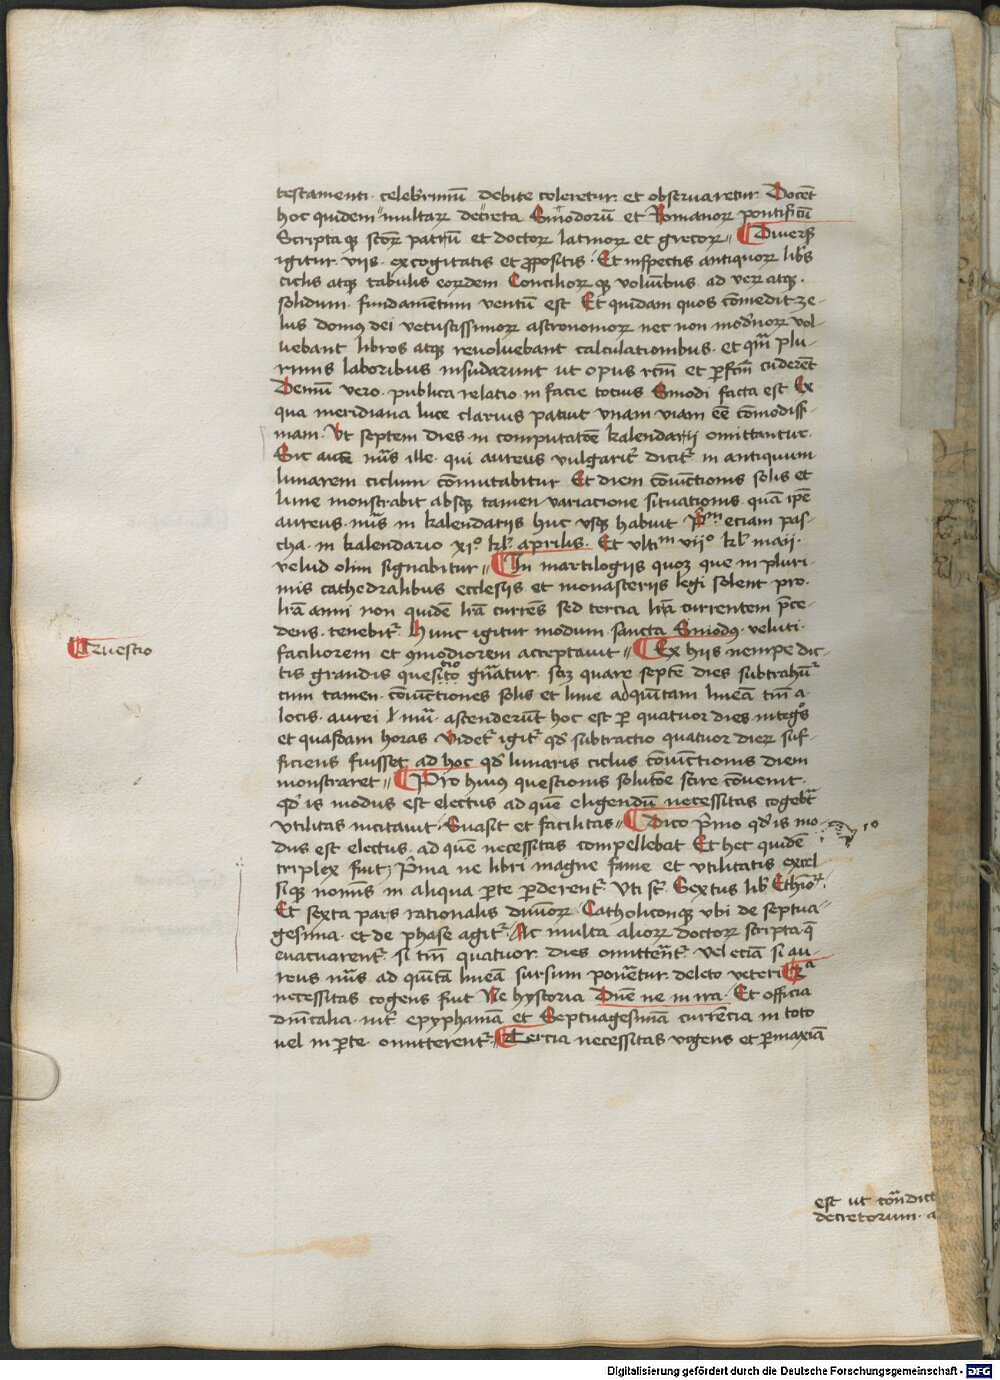 testamenti · celebrimū debite coleretur et obseruaretur · Docēt
hoc quidem multaꝝ decreta Sinodorū et Romanoꝝ pontificū
Scripta qꝫ sctoꝝ patrū et doctoꝝ latinoꝝ et grecoꝝ Diuersis
igitur viis excogitatis et ꝓpositis · Et inspectis antiquoꝝ libris
ciclis atqꝫ tabulis eoꝝdem Concilioꝝ qꝫ voluībus ad veꝝ atqꝫ
solidum fundamentum ventū est Et quidam quos cōmedit ze-
lus domus dei vetustissimoꝝ astronomoꝝ nec non modernoꝝ vol-
uebant libros atqꝫ reuoluebant calculationibus · et qm̄ plu-
rimis laboribus insudarunt ut opus rectm̄ et ꝑfcm̄ cuderent
Demū vero publica relatio in facie tocius Sinodi facta est Ex
qua meridiana luce clarius patuit vnam viam eē cōmodissi-
mam · Vt septem dies in computacōe kalendarii omittantur ·
Sic autē nūs ille qui aureus vulgarit dicit in antiquum
lunarem ciclum cōmutabitur Et diem cōiunctionis solis et
lune monstrabit absqꝫ tamen variacione situationis quā ipē
aureus nūs in kalendariis huc vsqꝫ habuit P̄m etiam pas-
cha in kalendario xio kl aprilis Et vltim viio kl maii
velud olim signabitur In martilogiis quoqꝫ que in pluri-
mis cathedralibus ecclesiis et monasteriis legi solent pro
lrā anni non quidē lrā currēs sed tercia lrā currentem p̄ce-
dens tenebit Hunc igitur modum sancta Sinodus veluti
faciliorem et ꝯmodiorem acceptauit Ex hiis nempe dic-
Questio
tis grandis questio gnatur scꝫ quare septē dies subtrahūt
cum tamen cōiunctiones solis et lune ad quintam lineā tm̄ a
locis aurei nūi ascenderūt hoc est ꝑ quatuor dies integros
et quasdam horas Videt igit qd subtractio quatuor dieꝝ suf-
ficiens fuisset ad hoc qd lunaris ciclus cōiunctionis diem
monstraret Pro huius questionis solutōe scire cōuenit
qd is modus est electus ad quē eligendū necessitas cogebat
vtilitas incitauit Suasit et facilitas Dico p̄mo qd is mo
dus est electus ad quē necessitas compellebat Et hec quidē
triplex fuit P̄ma ne libri magne fame et vtilitatis excel
siqꝫ nominis in aliqua ꝑte ꝑderent Vti st Sextus lib Ethioꝝ
Et sexta pars rationalis diuinoꝝ Catholiconqꝫ vbi de septua
gesima et de phase agit Ac multa alioꝝ doctoꝝ scripta q̄
euacuarent si tm̄ quatuor dies omittent vel etiā si au
reus nūs ad quītā lineā sursum ponetur deleto veteri 2a
necessitas cogens fuit Ne hystoria Dnē ne in ira Et officia
dnicalia int epyphaniā et Septuagesimā currēcia in toto
uel in ꝑte omitterent Tercia necessitas vrgens et ꝑmaxiā
est ut cōndict
decretorum · a
Digitalisierung gefördert durch die Deutsche Forschungsgemeinschaft - DFG